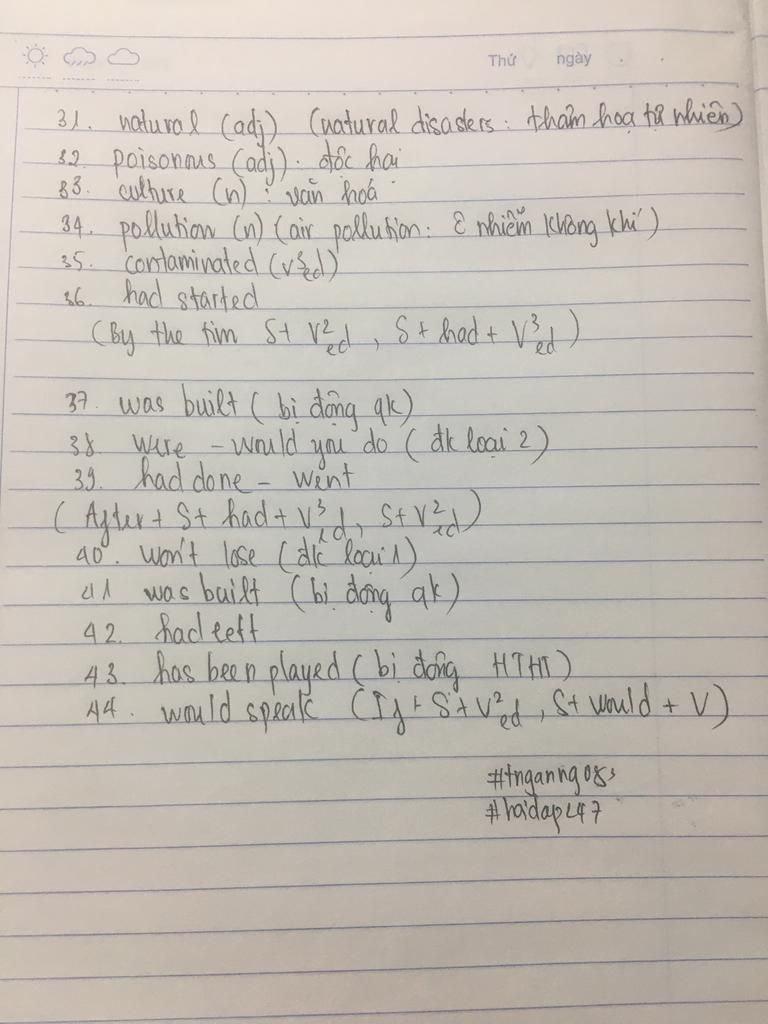 Thứ ngày
31. natural (adj) (natural disasters: thảm hoạ tự nhiên)
32. poisonous (adj). độc hại
33. culture (n) : văn hoá
34. pollution (n) (air pollution: ô nhiễm không khí)
35. contaminated (V3ed)
36. had started
(By the tim S+ V2ed, S+ had + V3ed)
37. was built (bị động qk)
38. were - would you do (đk loại 2)
39. had done - went
(After + S+ had + V3ed, S+V2ed)
40. won't lose (đk loại 1)
41 was built (bị động qk)
42. had left
43. has been played (bị động HTHT)
44. would speak (If + S+V2ed, S+ would + V)
#tnganng083
#hoidap247